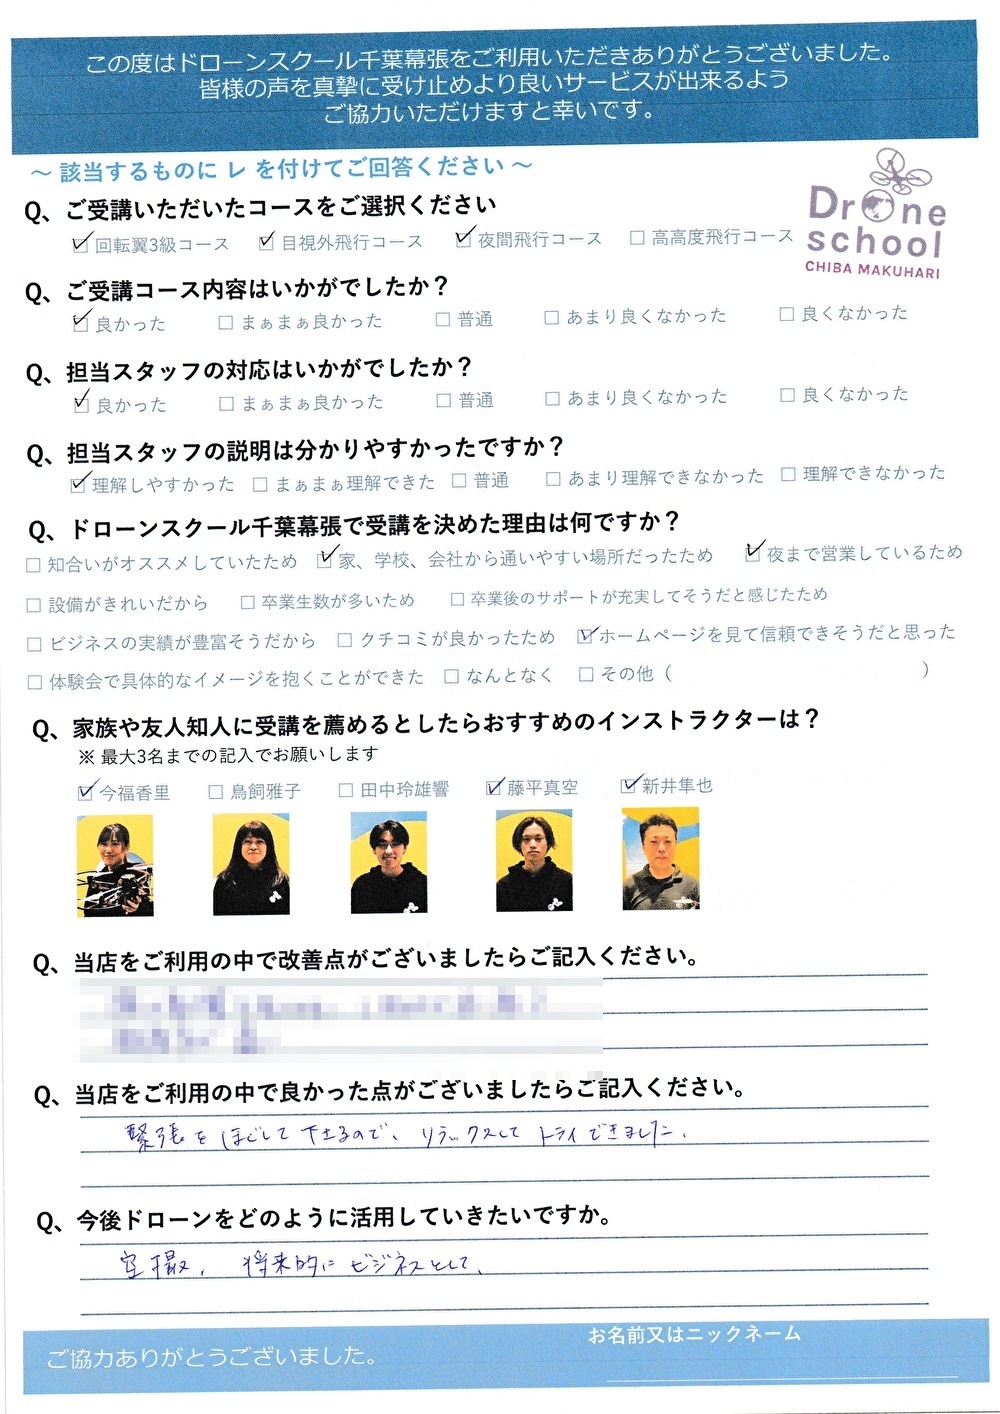 この度はドローンスクール千葉幕張をご利用いただきありがとうございました。
皆様の声を真摯に受け止めより良いサービスが出来るよう
ご協力いただけますと幸いです。
～ 該当するものに レ を付けてご回答ください ～
Drone
school
CHIBA MAKUHARI
Q、ご受講いただいたコースをご選択ください
☑ 回転翼3級コース ☑ 目視外飛行コース ☑ 夜間飛行コース □ 高高度飛行コース
Q、ご受講コース内容はいかがでしたか？
☑ 良かった □ まぁまぁ良かった □ 普通 □ あまり良くなかった □ 良くなかった
Q、担当スタッフの対応はいかがでしたか？
☑ 良かった □ まぁまぁ良かった □ 普通 □ あまり良くなかった □ 良くなかった
Q、担当スタッフの説明は分かりやすかったですか？
☑ 理解しやすかった □ まぁまぁ理解できた □ 普通 □ あまり理解できなかった □ 理解できなかった
Q、ドローンスクール千葉幕張で受講を決めた理由は何ですか？
□ 知合いがオススメしていたため ☑ 家、学校、会社から通いやすい場所だったため ☑ 夜まで営業しているため
□ 設備がきれいだから □ 卒業生数が多いため □ 卒業後のサポートが充実してそうだと感じたため
□ ビジネスの実績が豊富そうだから □ クチコミが良かったため ☑ ホームページを見て信頼できそうだと思った
□ 体験会で具体的なイメージを抱くことができた □ なんとなく □ その他（　　　）
Q、家族や友人知人に受講を薦めるとしたらおすすめのインストラクターは？
※ 最大3名までの記入でお願いします
☑ 今福香里 □ 鳥飼雅子 □ 田中玲雄響 ☑ 藤平真空 ☑ 新井隼也
Q、当店をご利用の中で改善点がございましたらご記入ください。
Q、当店をご利用の中で良かった点がございましたらご記入ください。
緊張をほぐして下さるので、リラックスしてトライできました。
Q、今後ドローンをどのように活用していきたいですか。
空撮、将来的にビジネスとして、
お名前又はニックネーム
ご協力ありがとうございました。